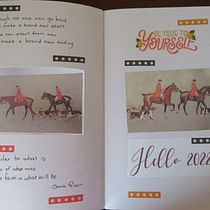 ough no one can go back
make a brand new start
can start from now
make a brand new ending
BE TRUE TO
YOURSELF
der to what is
of what was
faith in what will be
Hello 2022